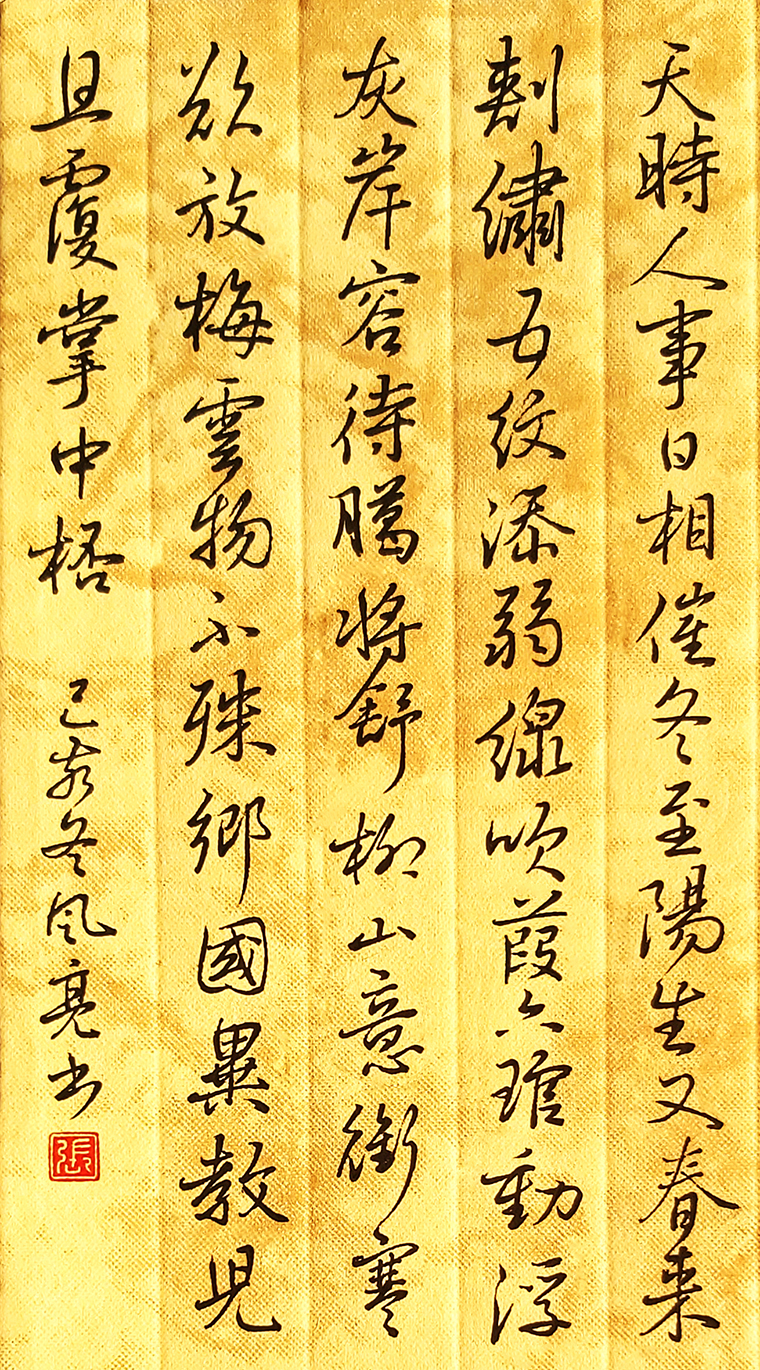 天時人事日相催冬至陽生又春来
刾繡五紋添弱線吹葭六琯動浮
灰岸容待臈将舒柳山意衝寒
欲放梅雲物不殊鄉國異教兒
且覆掌中桮
己亥冬风亮书
張